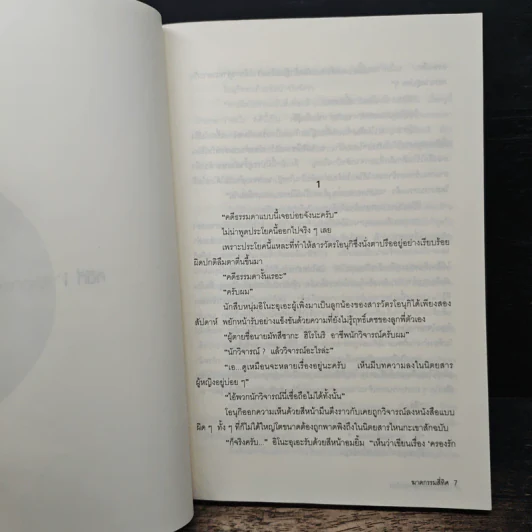 1
“คดีธรรมดาแบบนี้เจอบ่อยจังนะครับ”
ไม่น่าพูดประโยคนี้ออกไปจริง ๆ เลย
เพราะประโยคนี้แหละที่ทำให้สารวัตรโอนุกิซึ่งนั่งตาปรืออยู่อย่างเรียบร้อย
ผิดปกติลืมตาตื่นขึ้นมา
“คดีธรรมดางั้นเรอะ”
“ครับผม”
นักสืบหนุ่มอิโนะอุเอะผู้เพิ่งมาเป็นลูกน้องของสารวัตรโอนุกิได้เพียงสอง
สัปดาห์ พยักหน้ารับอย่างแข็งขันด้วยความที่ยังไม่รู้ฤทธิ์เดชของลูกพี่ตัวเอง
“ผู้ตายชื่อนายมัทสึซากะ ฮิโรโนริ อาชีพนักวิจารณ์ครับผม”
“นักวิจารณ์? แล้ววิจารณ์อะไรล่ะ”
“เอ...ดูเหมือนจะหลายเรื่องอยู่นะครับ เห็นมีบทความลงในนิตยสาร
ผู้หญิงอยู่บ่อย ๆ”
“ไอ้พวกนักวิจารณ์นี่เชื่อถือไม่ได้ทั้งนั้น”
โอนุกิออกความเห็นด้วยสีหน้ามึนตึงราวกับเคยถูกวิจารณ์ลงหนังสือแบบ
ผิด ๆ ทั้ง ๆ ที่ก็ไม่ได้ใหญ่โตขนาดต้องถูกพาดพิงถึงในนิตยสารไหนกะเขาสักฉบับ
“ก็จริงครับ...” อิโนะอุเอะรับด้วยสีหน้าอมยิ้ม “เห็นว่าเขียนเรื่อง ‘ครองรัก
ฆาตกรรมสี่ทิศ 7